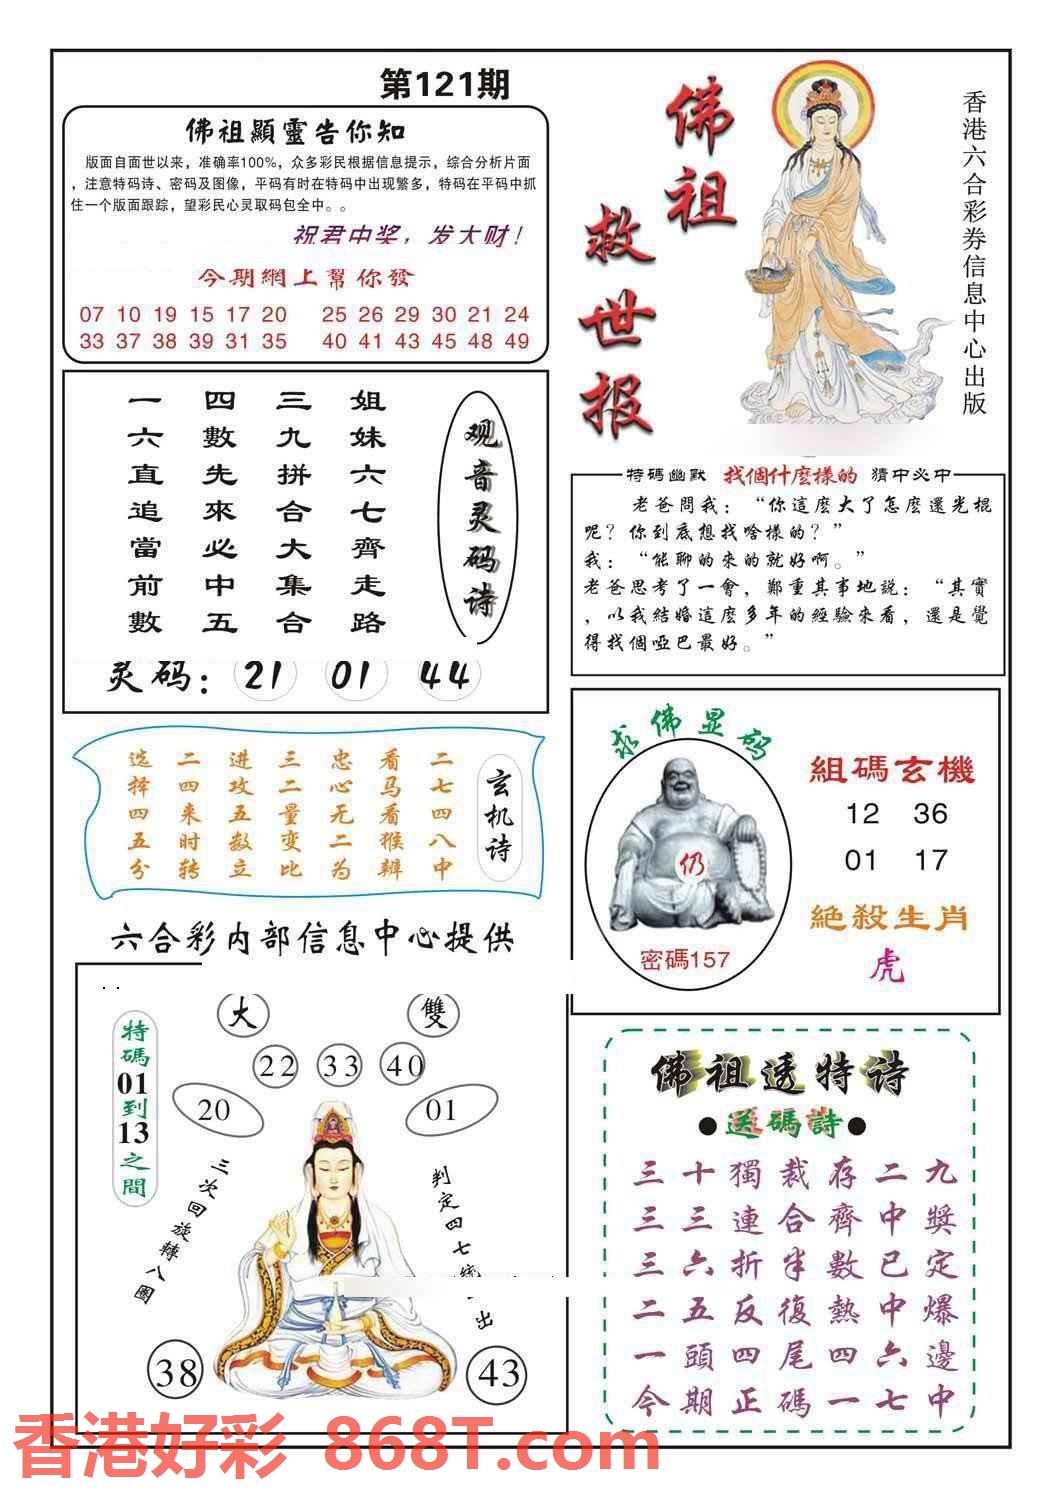 第121期
佛祖顯靈告你知
版面自面世以来，准确率100%，众多彩民根据信息提示，综合分析片面
，注意特码诗、密码及图像，平码有时在特码中出现繁多，特码在平码中抓
住一个版面跟踪，望彩民心灵取码包全中。。
祝君中奖，发大财！
今期網上幫你發
07 10 19 15 17 20 25 26 29 30 21 24
33 37 38 39 31 35 40 41 43 45 48 49
佛祖
救世报
香港六合彩券信息中心出版
观音灵码诗
姐妹六七齊走路
三九拼合大集合
四數先來必中五
一六直追當前數
灵码：21 01 44
特碼幽默 找個什麼樣的 猜中必中
老爸問我：“你這麼大了怎麼還光棍
呢？你到底想找啥樣的？”
我：“能聊的來的就好啊。”
老爸思考了一會，鄭重其事地説：“其實
，以我結婚這麼多年的經驗來看，還是覺
得找個啞巴最好。”
玄机诗
二七四八中
看马看猴辨
忠心无二为
三二量变比
进攻五数立
二四来时转
选择四五分
求佛显码
仍
密碼157
組碼玄機
12 36
01 17
絕殺生肖
虎
六合彩内部信息中心提供
大 雙
22 33 40
20 01
特碼01到13之間
三次回旋轉八圈
判定四七
出
38 43
佛祖透特诗
●送碼詩●
三十獨裁存二九
三三連合齊中獎
三六折半數已定
二五反復熱中爆
一頭四尾四六邊
今期正碼一七中
香港好彩 868T.com